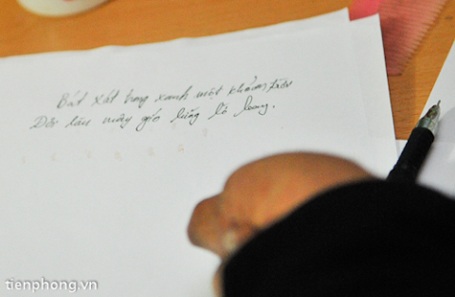 Bát Xát trong xanh một khoảng trời
Dôi làn mây gió lửng lơ
tienphong.vn